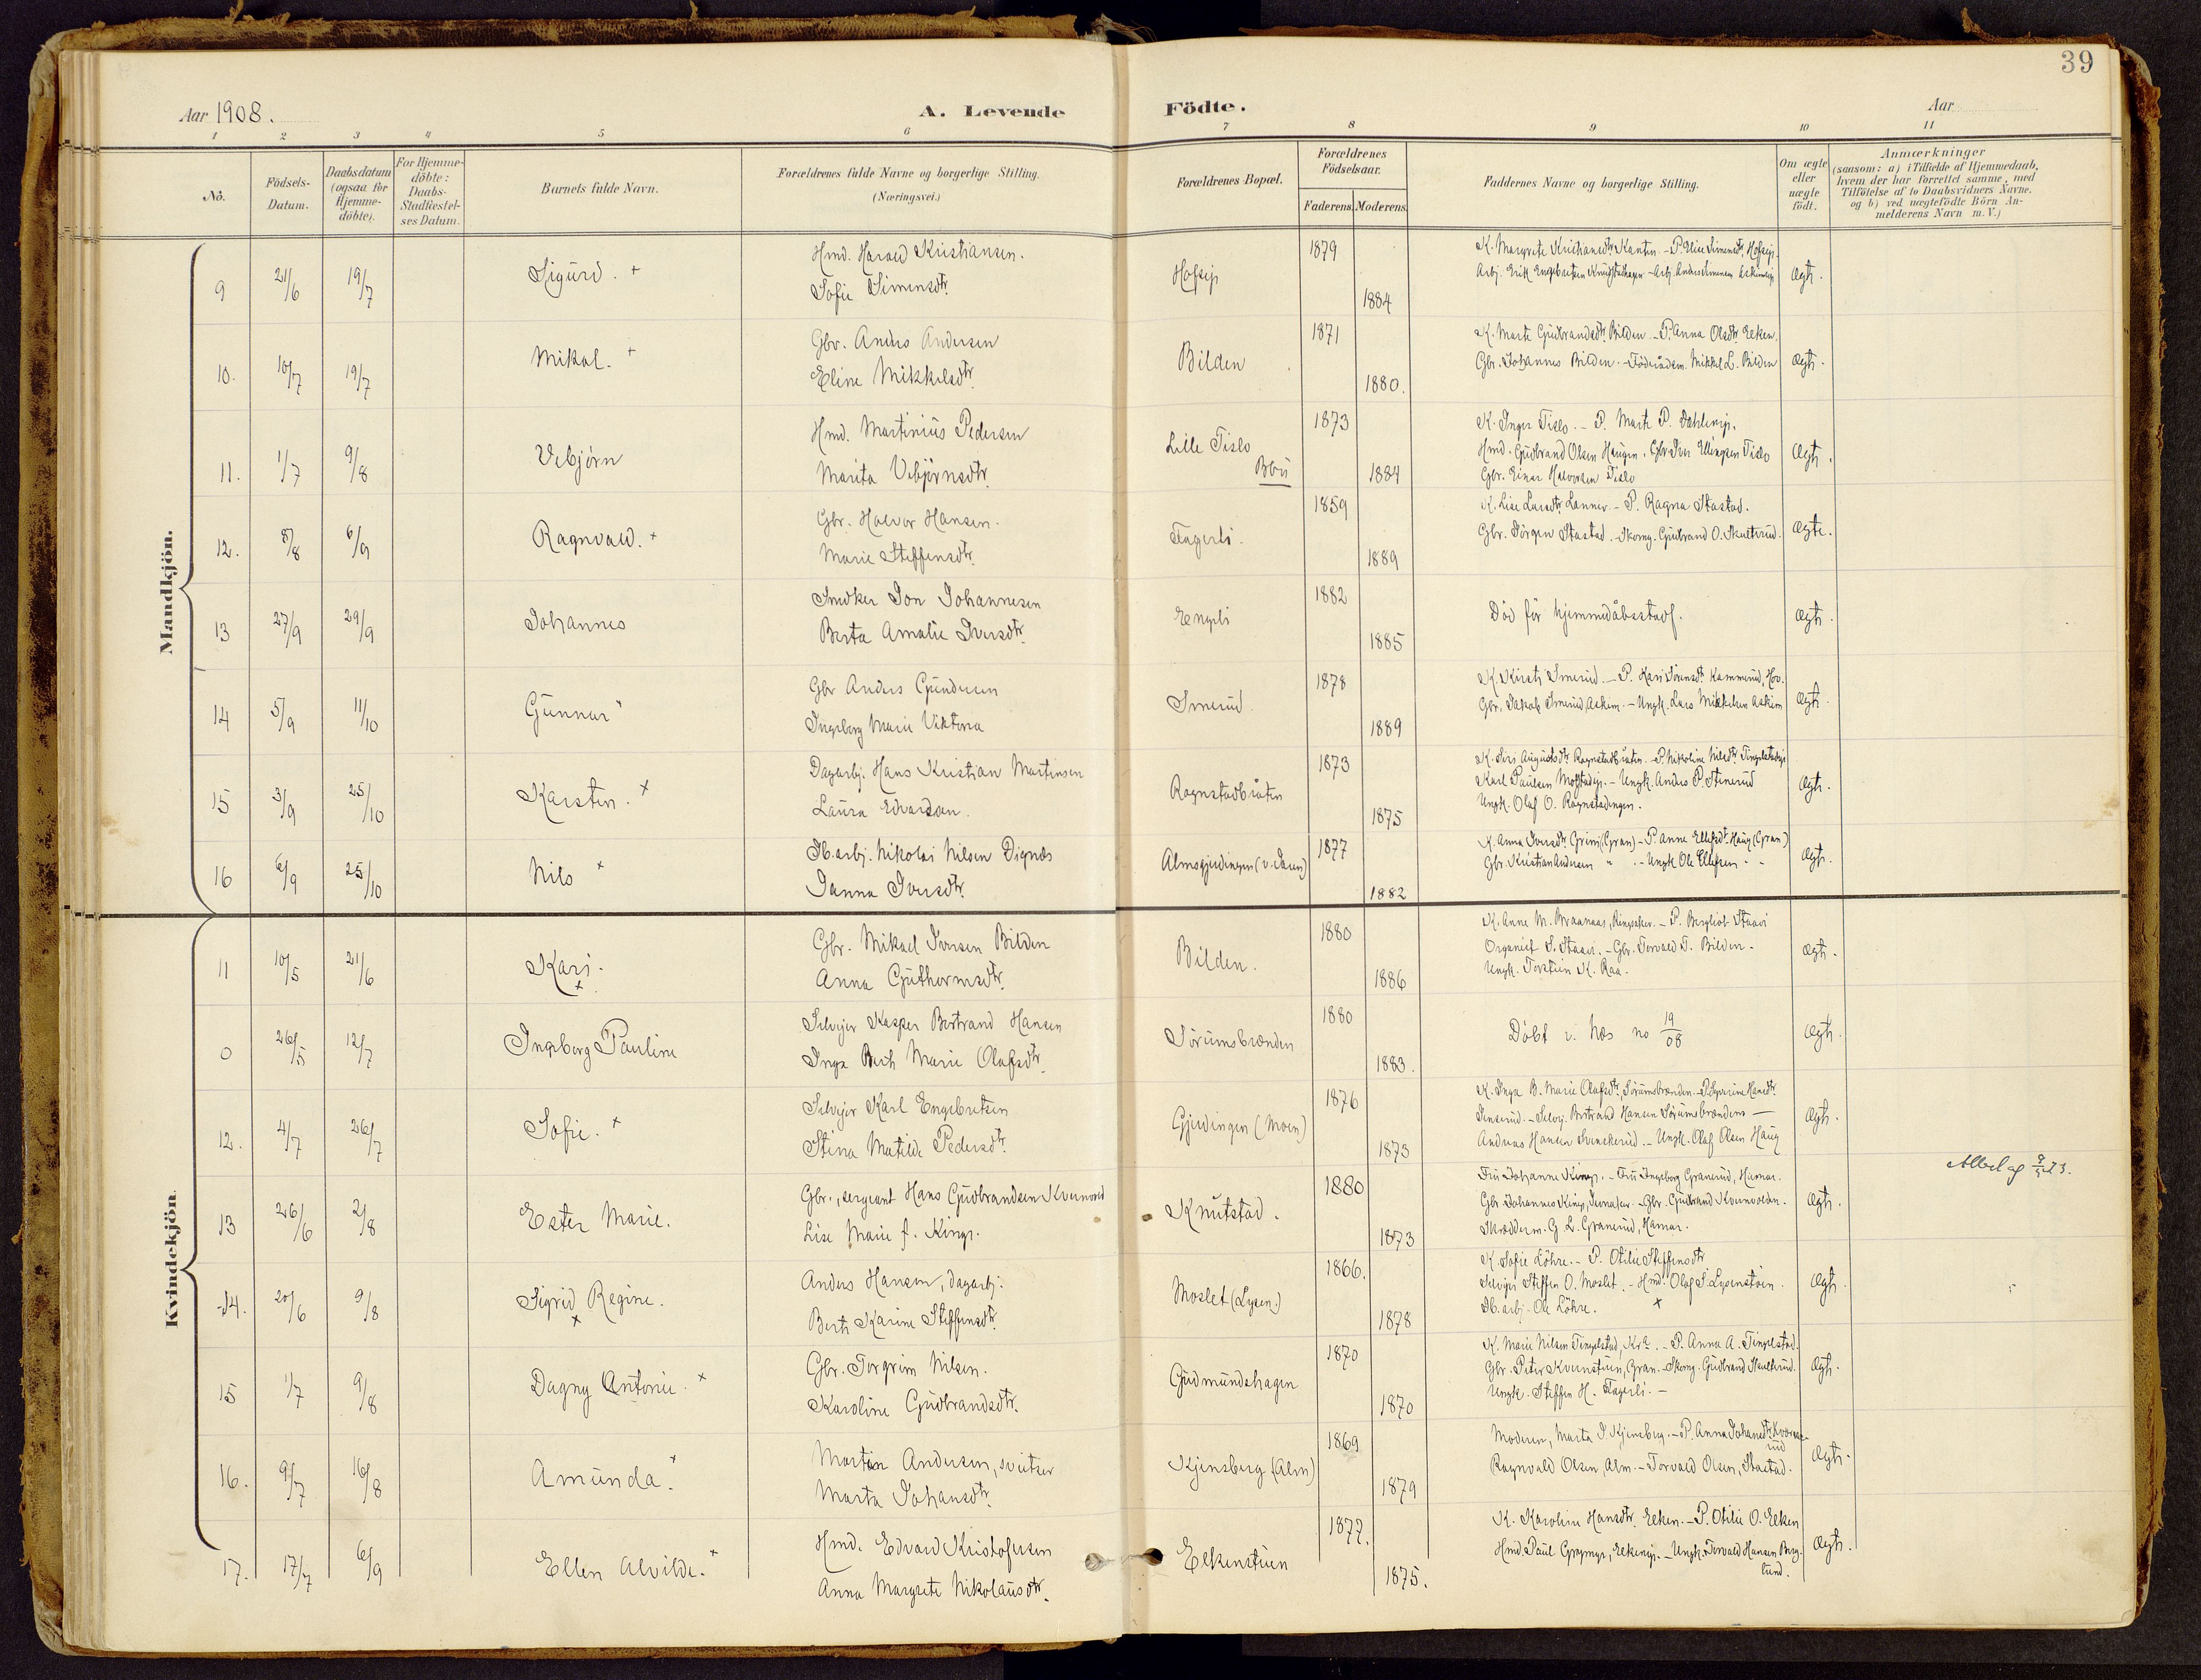 39
Aar 1908.
A. Levende Födte.
Aar
1 2 3 4 5 6 7 8 9 10 11
No.
Födsels-Datum.
Daabsdatum (ogsaa for Hjemme-döbte).
For Hjemme-döbte: Daabs-Stadfæstel-ses Datum.
Barnets fulde Navn.
Forældrenes fulde Navne og borgerlige Stilling.
(Næringsvei.)
Forældrenes Bopæl.
Forældrenes Födselsaar.
Faderens. Moderens.
Faddernes Navne og borgerlige Stilling.
Om ægte eller uægte födt.
Anmærkninger
(saasom: a) i Tilfælde af Hjemmedaab, hvem der har forrettet samme, med Tilföielse af to Daabsvidners Navne. og b) ved uægtefödte Börn An-melderens Navn m. V.)
Mandkjön.
9 21/6 19/7 Sigurd. +
Hmd. Harald Kristiansen.
Sofie Simensdtr.
Hofseje 1879 1884
Ægte.
10. 10/7 19/7 Mikal. +
Gbr. Anders Andersen
Eline Mikkelsdtr.
Bilden 1871 1880.
K. Marte Gudbrandsdtr. Bilden. - P. Anna Olsdtr. Elken.
Gbr. Johannes Bilden. - Föderådsm. Mikkel L. Bilden
Ægte.
11. 1/7 9/8 Vebjörn
Hmd. Martinius Pedersen
Marita Vebjörnsdtr.
Lille Tislo
1873 1884
K. Inger Tislo. - P. Marte P. Dahleneje.
Hmd. Gudbrand Olsen Haugen. Gbr. Iver Ellingsen Tislo
Gbr. Einar Halvorsen Tislo
Ægte.
12. 8/8 6/9 Ragnvald. +
Gbr. Halvor Hansen.
Marie Steffensdtr.
Fagerli. 1859 1889
K. Lise Larsdtr. Lanner. - P. Ragna Stastad.
Gbr. Jörgen Stastad. - Skomg. Gudbrand O. Skulterud.
Ægte.
13 27/9 29/9 Johannes
Snedker Jon Johannesen
Berta Amalie Iversdtr.
Engeli 1882 1885
Död för hjemmedåbsstadf.
Ægte.
14 5/9 11/10 Gunnar
Gbr Anders Gundersen
Ingeborg Marie Viktoria
Smerud. 1878 1889
K. Kirsti Smerud. - P. Kari Iversdtr. Kammerud, Hov.
Gbr. Jakob Smerud, Askim. - Ungk. Lars Mikkelsen Askim
Ægte.
15 3/9 25/10 Karsten. +
Dagarbj. Hans Kristian Martinsen
Laura Edvardsen.
Rognstadbråten 1873 1875
Karl Paulsen - Ungk. Anders P. Stenerud
Ungk. Olaf O. Rognstadengen.
Ægte.
16 6/9 25/10 Nils +
Jb.arbj. Nikolai Nilsen Dignæs
Janna Iversdtr.
Almsgjerdingen (v. Jaren) 1877 1882
K. Anna Iversdtr. Grini (Gran) - P. Anne Ellefsdtr. Haug (Gran)
Gbr. Kristian Andersen " - Ungk. Ole Ellefsen " "
Ægte.
Kvindekjön.
11 10/5 21/6 Kari. +
Gbr. Mikael Iversen Bilden
Anna Guthormsdtr.
Bilden. 1880 1886
K. Anne M. Braanaas, Ringsaker. - P. Bergliot Staavi
Organist S. Staavi. - Gbr. Torvald T. Bilden.
Ungk. Torstein K. Raa.
Ægte.
0 26/5 12/7 Ingeborg Pauline
Selvejer Kasper Bertrand Hansen
Inga Berte Marie Olafsdtr.
Sörumsbrænden 1880 1883.
Döbt i. Næs no 19/08
Ægte.
12. 4/7 26/7 Sofie. +
Selvejer Karl Engebretsen
Stina Matilde Pedersdtr.
Gjerdingen (Moen) 1876 1873
K. Inga B. Marie Olafsdtr. Sörumsbrænden.
- Selvej. Bertrand Hansen Sörumsbrændens
Andreas Hansen Svenskerud. - Ungk. Olaf Olsen Haug
Ægte.
13 26/6 2/8 Ester Marie.
Gbr., sergeant Hans Gudbrandsen Kvernvold
Lise Marie f. Kinge.
Knutstad. 1880 1873
Fru Johanne Kinge. - Fru Ingeborg Granerud, Hamar.
Gbr. Johannes Kinge, - Gbr. Gudbrand Kvernvolden.
Skrædderm. G. L. Granerud, Hamar.
Ægte.
14. 20/6 9/8 Sigrid Regine. +
Anders Hansen, dagarbj.
Berte Karine Steffensdtr.
Moslet (Lysen.) 1866. 1878
K. Sofie Löhre. - P. Otilie Steffensdtr
Selvejer Steffen O. Moslet. - Hmd. Olaf S. Lysenstöen.
Jb.arbj. Ole Löhre. +
Ægte.
15 1/7 9/8 Dagny Antonie. +
Gbr. Torgrim Nilsen.
Karoline Gudbrandsdtr.
Gudmundshagen 1870 1870
K. Marie Nilsen Tingelstad, Kra. - P. Anna A. Tingelstad.
Gbr. Peter Kvernstuen, Gran. - Skomg. Gudbrand Skulterud.
Ungk. Steffen H. Fagerli. -
Ægte.
16. 9/7 16/8 Amunda. +
Martin Andersen, sveitser
Marta Johansdtr.
Kjensberg (Alm) 1869 1879
Moderen, Marta J. Kjensberg. - P. Anna Johansdtr.
Ragnvald Olsen, Alm. - Torvald Olsen, Stastad.
Ægte.
17. 17/7 6/9 Ellen Alvilde. +
Hmd. Edvard Kristofersen
Anna Margrete Nikolausdtr.
Elkenstuen 1877. 1875.
K. Karoline Hansdtr. Elken. - P. Otilie O. Elken
Hmd. Paul - Ungk. Torvald Hansen Berg-
lund.
Ægte.